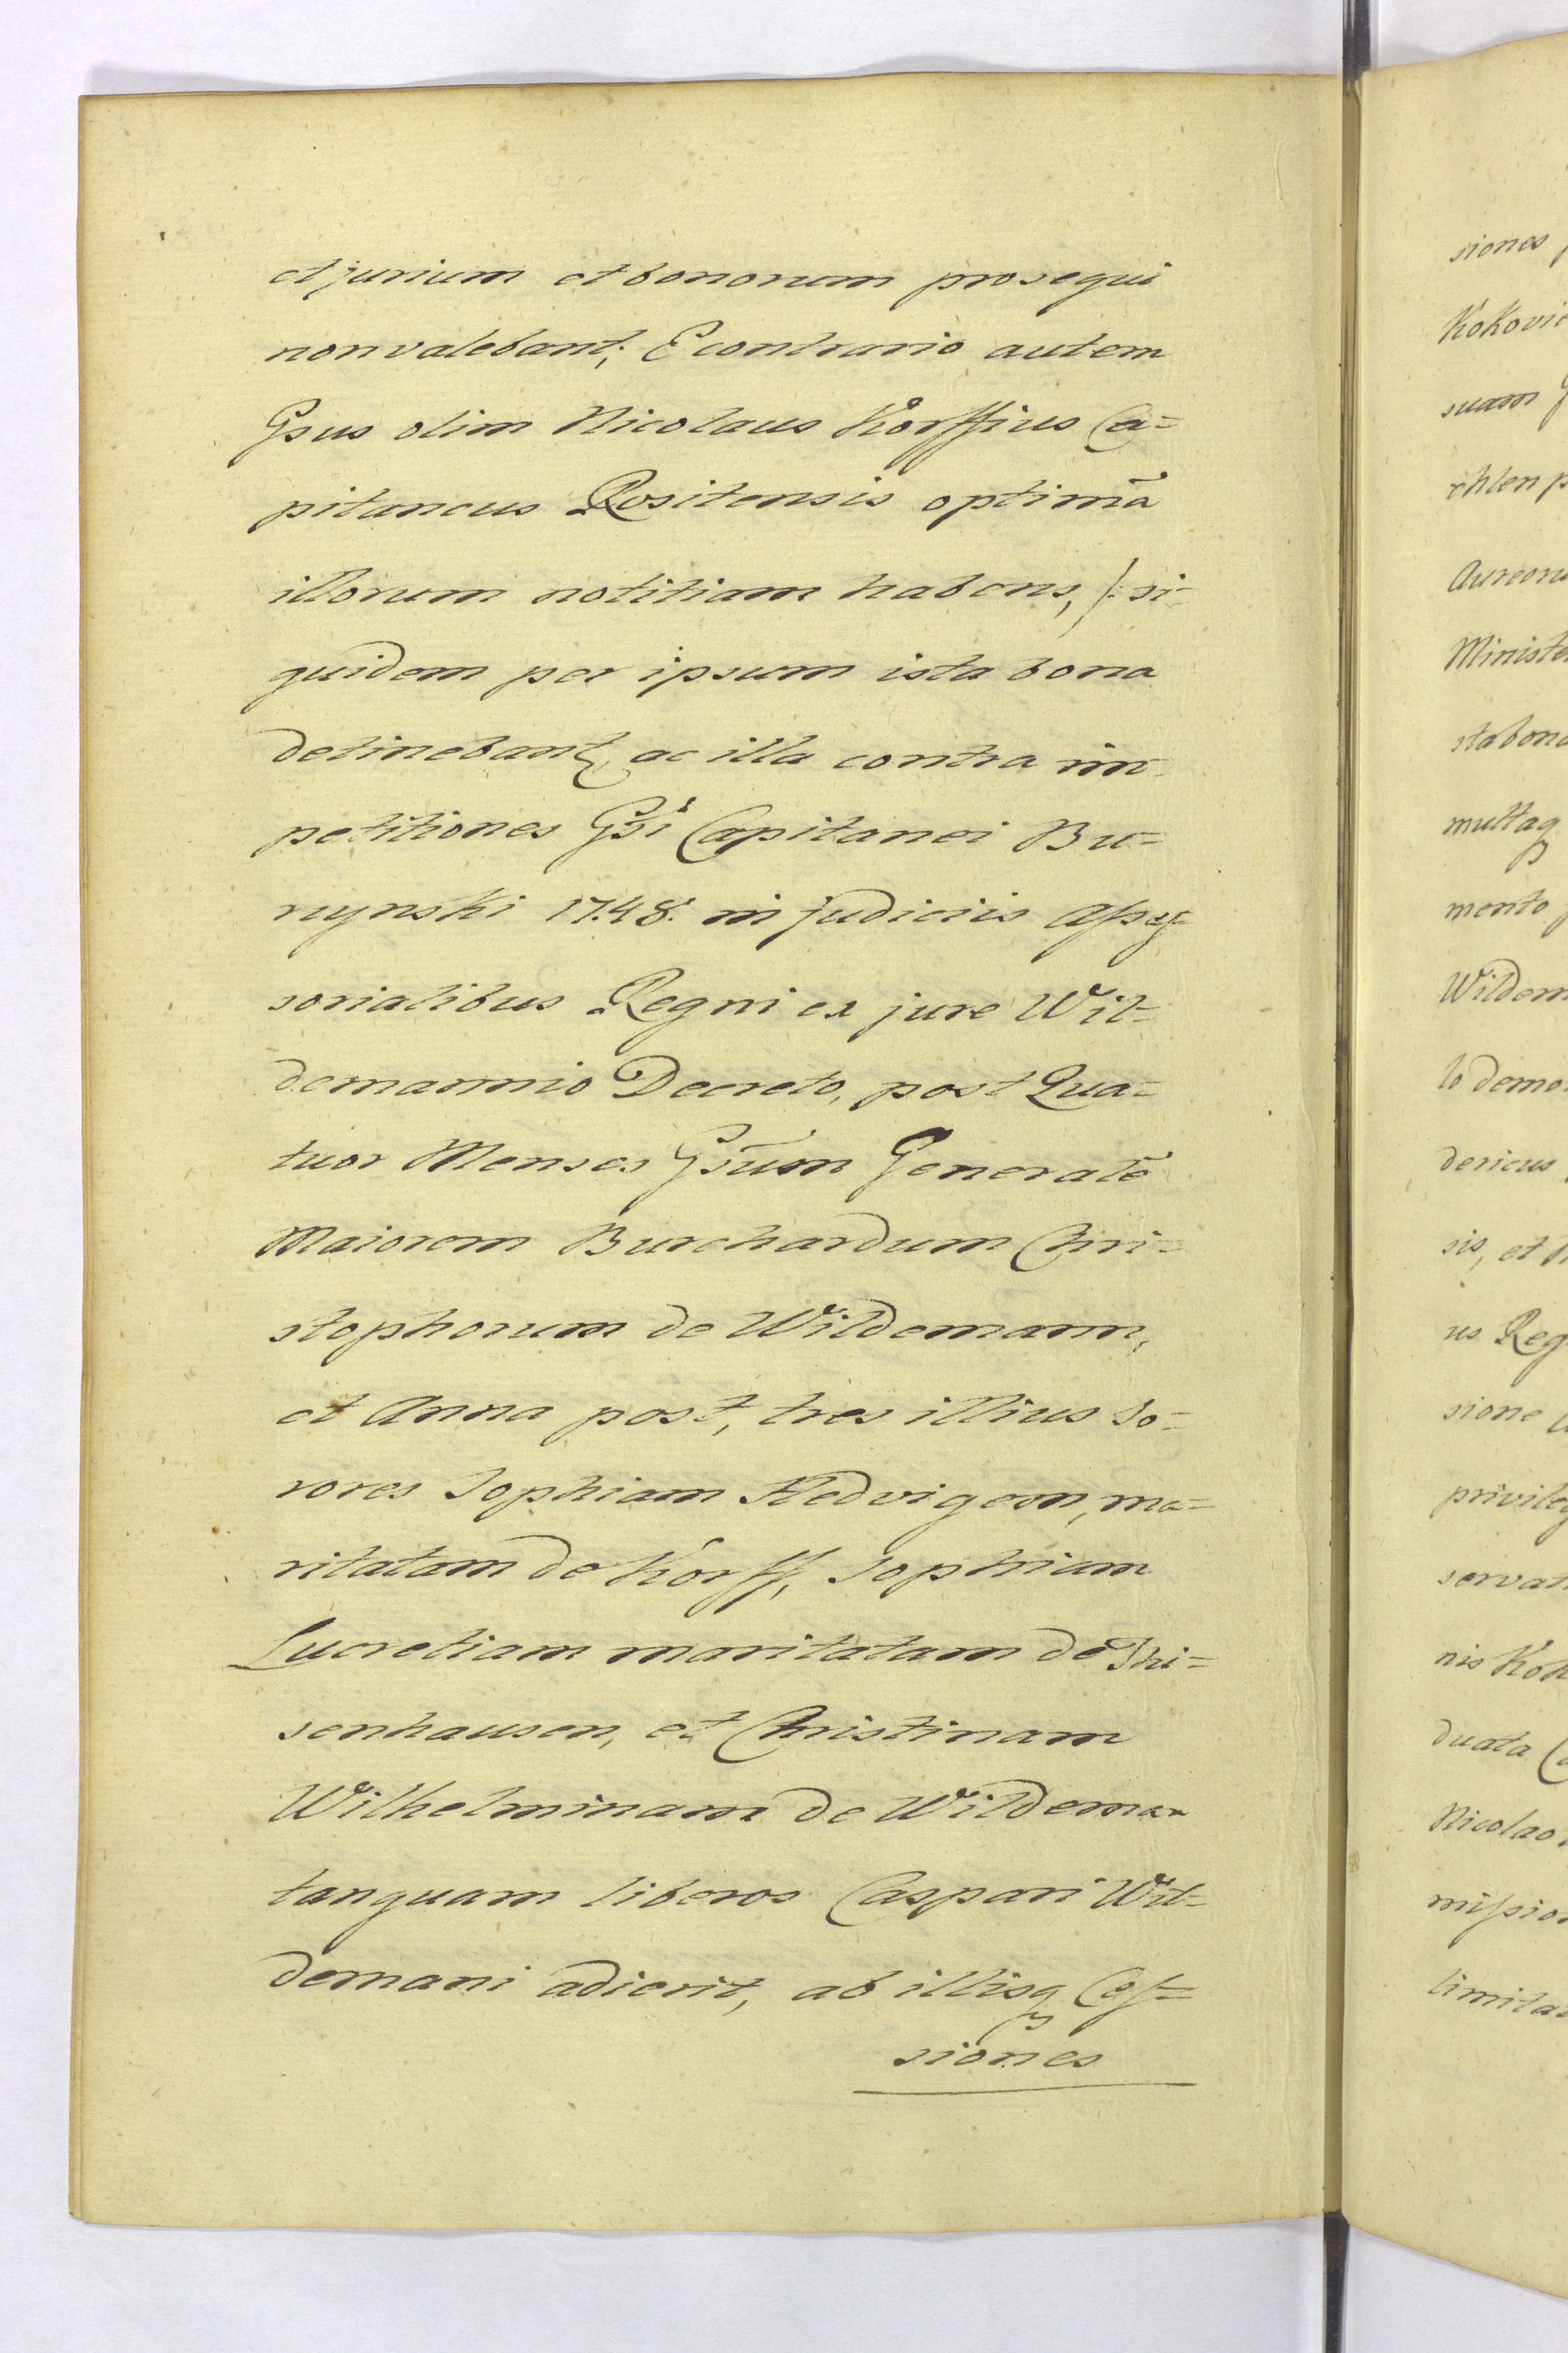 et jurium et bonorum prosequi
non valebant; E contrario autem
Gsus olim Nicolaus Korffius Ca=
pitaneus Rositensis optimā
illorum notitiam habens, /: si=
quidem per ipsum ista bona
detinebant, ac illa contra im
petitiones Gsi Capitanei Bu=
ynski 1748. in judiciis Asses=
sorialibus Regni ex jure Wil=
demannio Decreto, post Qua=
tuor Menses Gsum Generale
Maiorem Burchardum Chri=
stophorum de Wildemann,
et Anna post, tres illius So=
rores Sophiam Hedvigem, ma=
ritatam de Korff, Sophiam
Lucretiam maritatam de Thi=
senhausen, et Christinam
Wilhelminam de Wildeman
tanquam liberos Caspari Wil=
demani adierit, ab illisq Ces=
siones
siones
Kokovi
suam
chlen p
Aureoru
Ministe
sta bona
multaq
mento
Wildem
lo demo
dericus
sis, et
us Reg
sione
privileg
servat
nis Kok
duata
Nicolao
missio
limita